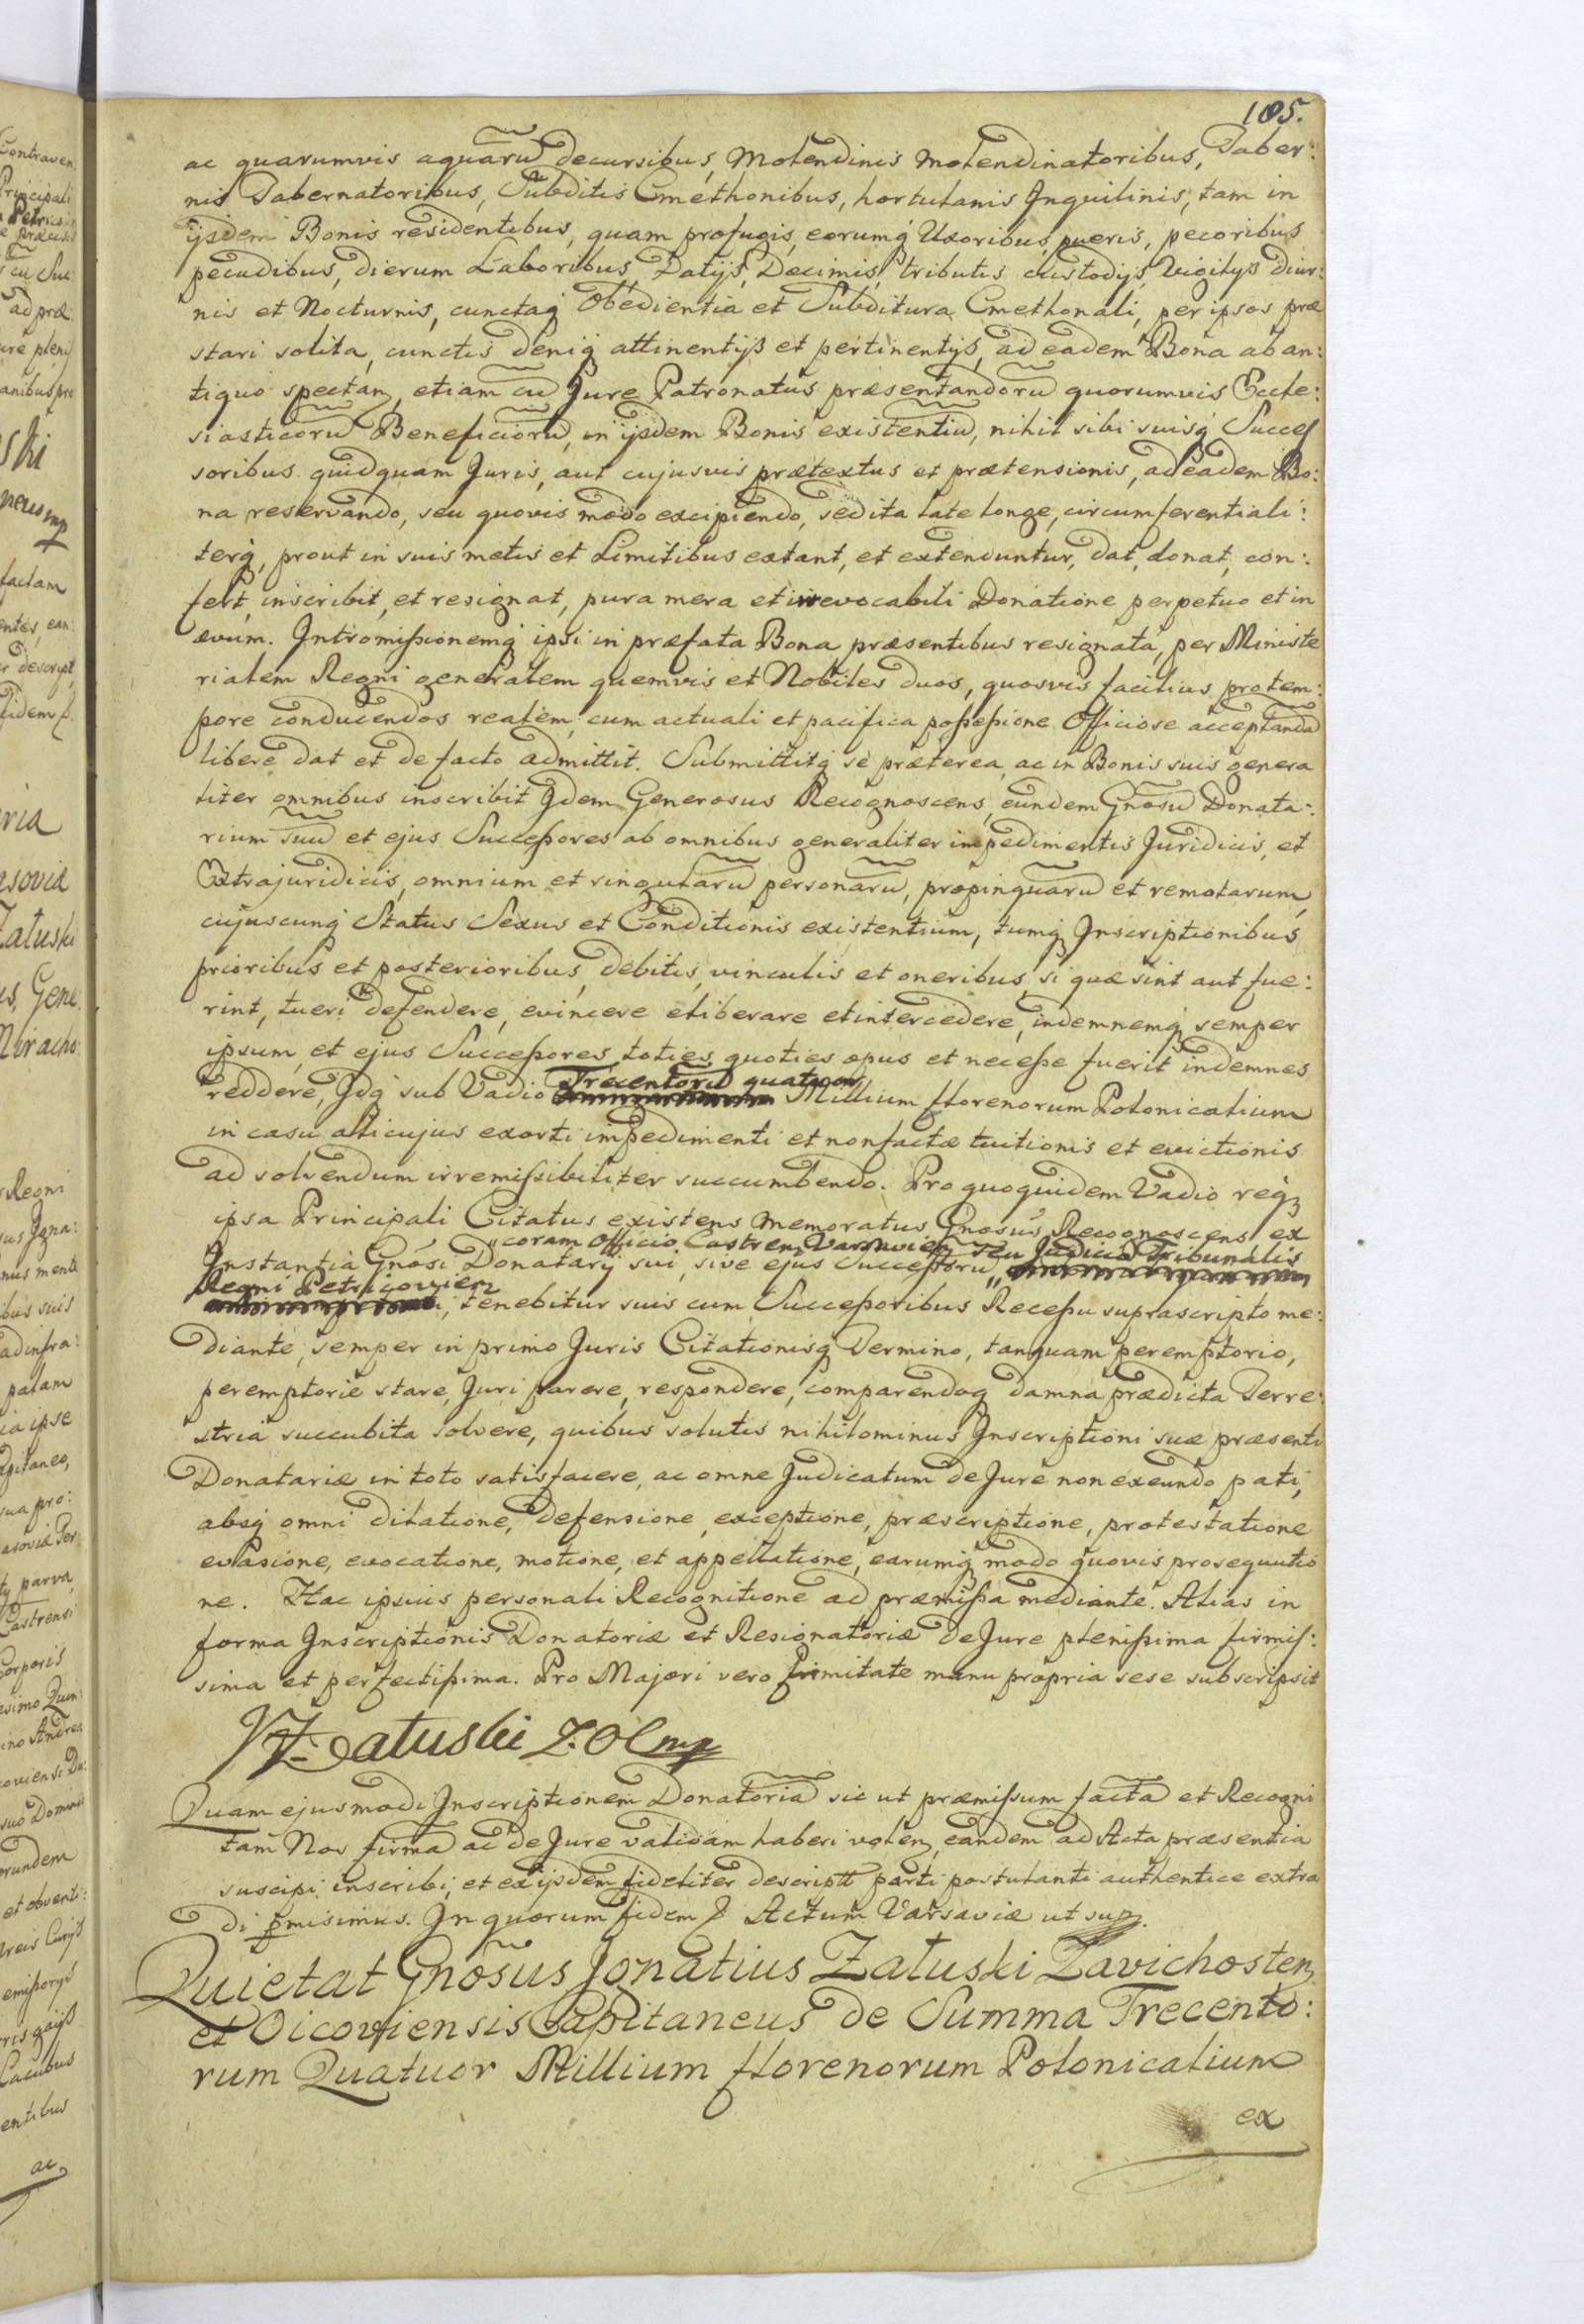 105.
ac quarumvis aquarũ decursibus, Molendinis Molendinatoribus, Taber:
nis Tabernatoribus, Subditis Cmethonibus, hortulanis Inquilinis, tam in
ijsdem Bonis residentibus, quam profugis, eorumq́ Uxoribus, pueris, pecoribus
pecudibus, dierum Laboribus, Datijs, Decimis, tributis custodijs, Vigilijs diur:
nis et Nocturnis, cunctaq́ Obedientia et Subditura Cmethonali, per ipsos præ
stari solita, cunctis deniq́ attinentijs et pertinentijs, ad eadem Bona ab an:
tiquo spectan, etiam cũ Jure Patronatus præsentandorũ quorumvis Eccle:
siasticorũ Beneficiorũ, in ijsdem Bonis existentiũ, nihil sibi suisq́ Succeſ
soribus quidquam Juris, aut cujusvis prætextus et prætensionis, ad eadem Bo:
na reservando, seu quovis modo excipiendo, sed ita late longe, circumferentiali:
terq́, prout in suis metis et Limitibus extant, et extenduntur, dat, donat, con:
fert, inscribit, et resignat, pura mera et irrevocabili Donatione perpetuo et in
ævum. Intromiſsionemq́ ipsi in præfata Bona præsentibus resignata, per Ministe
rialem Regni generalem quemvis et Nobiles duos, quosvis facilius pro tem:
pore conducendos realem, cum actuali et pacifica poſseſsione Officiose acceptandã
libere dat et de facto admittit. Submittitq́ se præterea, ac in Bonis suis genera
liter omnibus inscribit Idem Generosus Recognoscens, eundem Gnosũ Donata:
rium suũ et ejus Succeſsores ab omnibus generaliter impedimentis Juridicis, et
Extrajuridicis, omnium et singularũ personarũ, propinquarũ et remotarum,
cujuscunq́ Status Sexus et Conditionis existentium, tumq́ Inscriptionibus
prioribus et posterioribus, debitis, vinculis et oneribus, si quæ sint aut fue:
rint, tueri defendere, evincere et liberare et intercedere, indemnemq́ semper
ipsum, et ejus Succeſsores, toties quoties opus et neceſse fuerit indemnes
reddere, Idq́ sub Vadio Trecentorũ quatuor Millium florenorum Polonicalium
in casu alicujus exorti impedimenti et non factæ tuitionis et evictionis
ad solvendum irremiſsibiliter succumbendo. Pro quoquidem Vadio req
ipsa Principali Citatus existens memoratus Gnosus Recognoscens ex
Instantia Gnosi Donatarij sui, sive ejus Succeſsorũ, coram Officio Castren Varsavien seu Judicio Tribunalis
Regni Petricovien, tenebitur suis cum Succeſsoribus Receſsu suprascripto me:
diante, semper in primo Juris Citationisq́ Termino, tanquam peremptorio,
peremptorie stare, Juri parere, respondere, comparendoq́ damna prædicta Terre:
stria succubita solvere, quibus solutis nihilominus Inscriptioni suæ præsenti
Donatariæ in toto satisfacere, ac omne Judicatum de Jure non exeundo pati,
absq́ omni dilatione, defensione, exceptione, præscriptione, protestatione
evasione, evocatione, motione, et appellatione, earumq́ modo quovis prosequutio
ne. Hac ipsius personali Recognitione ad præmiſsa mediante. Alias in
forma Inscriptionis Donatoriæ et Resignatoriæ de Jure pleniſsima firmiſ:
sima et perfectiſsima. Pro Majori vero firmitate manu propria sese subscripsit
Załuski Z. O C mp
Quam ejusmodi Inscriptionem Donatoriã sic ut præmiſsum factã et Recogni
tam Nos firmã ac de Jure validam haberi volen, eandem ad Acta præsentia
suscipi inscribi, et ex ijsdem fideliter descriptt parti postulanti authentice extra
di pmisimus. In quorum fidem Actum Varsaviæ ut sup.
Quietat Gnõsus Ignatius Załuski Zavichosten
et Oicoviensis Capitaneus de Summa Trecento:
rum Quatuor Millium florenorum Polonicalium
ex